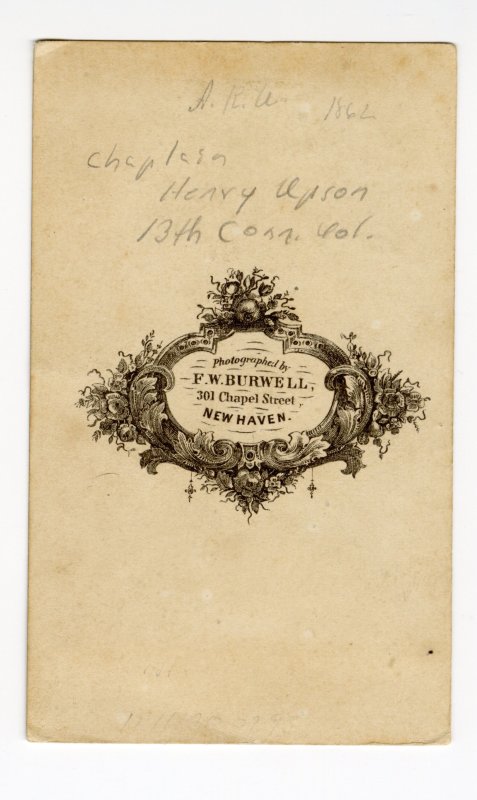 1862
Chaplain
Henry Upson
13th Conn. Vol.
Photographed by
F.W. BURWELL,
301 Chapel Street
NEW HAVEN.